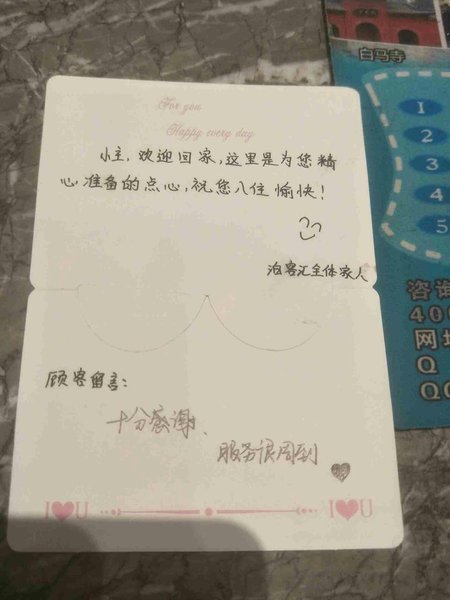 For you
Happy every day
小主,欢迎回家,这里是为您精
心准备的点心,祝您入住愉快!
泊客汇全体家人
顾客留言:
十分感谢、
服务很周到
I U
I U
白马寺
1
2
3
4
5
咨询
400
网址
Q
QQ